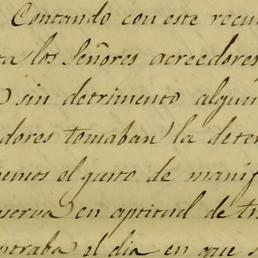 Contando con este recu
ta los Señores acreedores
) sin detrimento algun
dores tomaban la deter
emos el gusto de manif
serva en aptitud de tr
ntraba el dia en que s